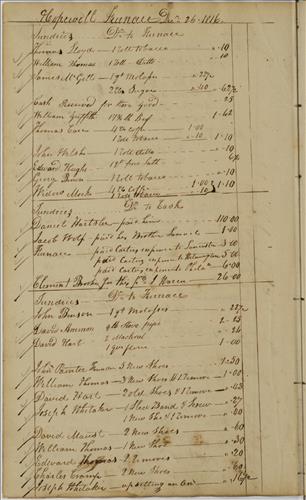 Hopewell Furnace Dec 26. 1816
Sundries Dr to Furnace
Thomas Lloyd 1 Roll Tobacco .10
William Thomas 1 Roll Ditto .10
James McGett 1 qt Molases 22½
2 lb Sugar .40 62½
Cash Received for Stove Good 25
William Griffith lb Beef 1.62
Thomas 4 lb Coffe 1.00
1 Roll Tobacco .10 1.10
John Welsh 1 Roll ditto .10
Edward Hughs 1 qt fine Salt 6¼
George Brown 1 Roll Tobacco .10
Widow Meek 4 lb Coffe 1.00
1 Roll Tobacco .10 1.10
Sundries Dr to Cash
Daniel Hartzler paid him 110.00
Jacob Wolf paid his Brother Samuel 1.40
Furnace paid Carting expences to 3.00
paid Carting expences to Wilmington 3.00
paid Carting expences to Philada 6.00
Clement Brooke for the 26.00
Sundries Dr to Furnace
John Benson 1 qt Molasses 22½
David Ammon Stove pipe 2.25
David Hart 2 Mackrel .24
1 pr
John Painter 3 New Shoes 1.50
William Thomas 3 New Shoes & 1 Remove 1.00
David Hart 2 old Shoes & 1 Remove .43
Joseph Whitaker 1 Sled Band & Screw .27
1 New Shoe & 1 Remove .40
David Maust 2 New Shoes .60
William Thomas 1 New Shoe .30
Edward Thomas 2 Removes .20
Charles Cramp 2 New Shoes .60
Joseph Whitaker upsetting an Axe